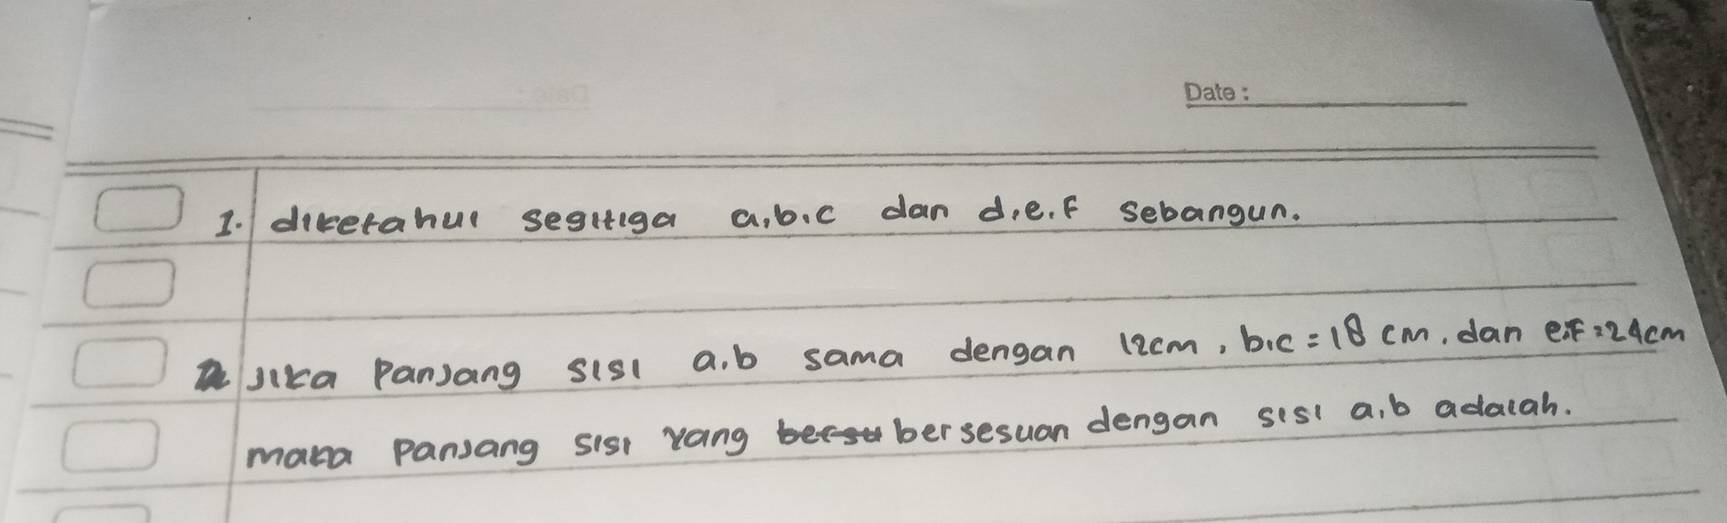 Date :
1. diketahui segitiga a,b,c dan d,e,f sebangun.
jika panjang sisi a,b sama dengan 12cm, b,c = 18 cm, dan e,f = 24cm
maka panjang sisi yang bersesuan dengan sisi a,b adalah.